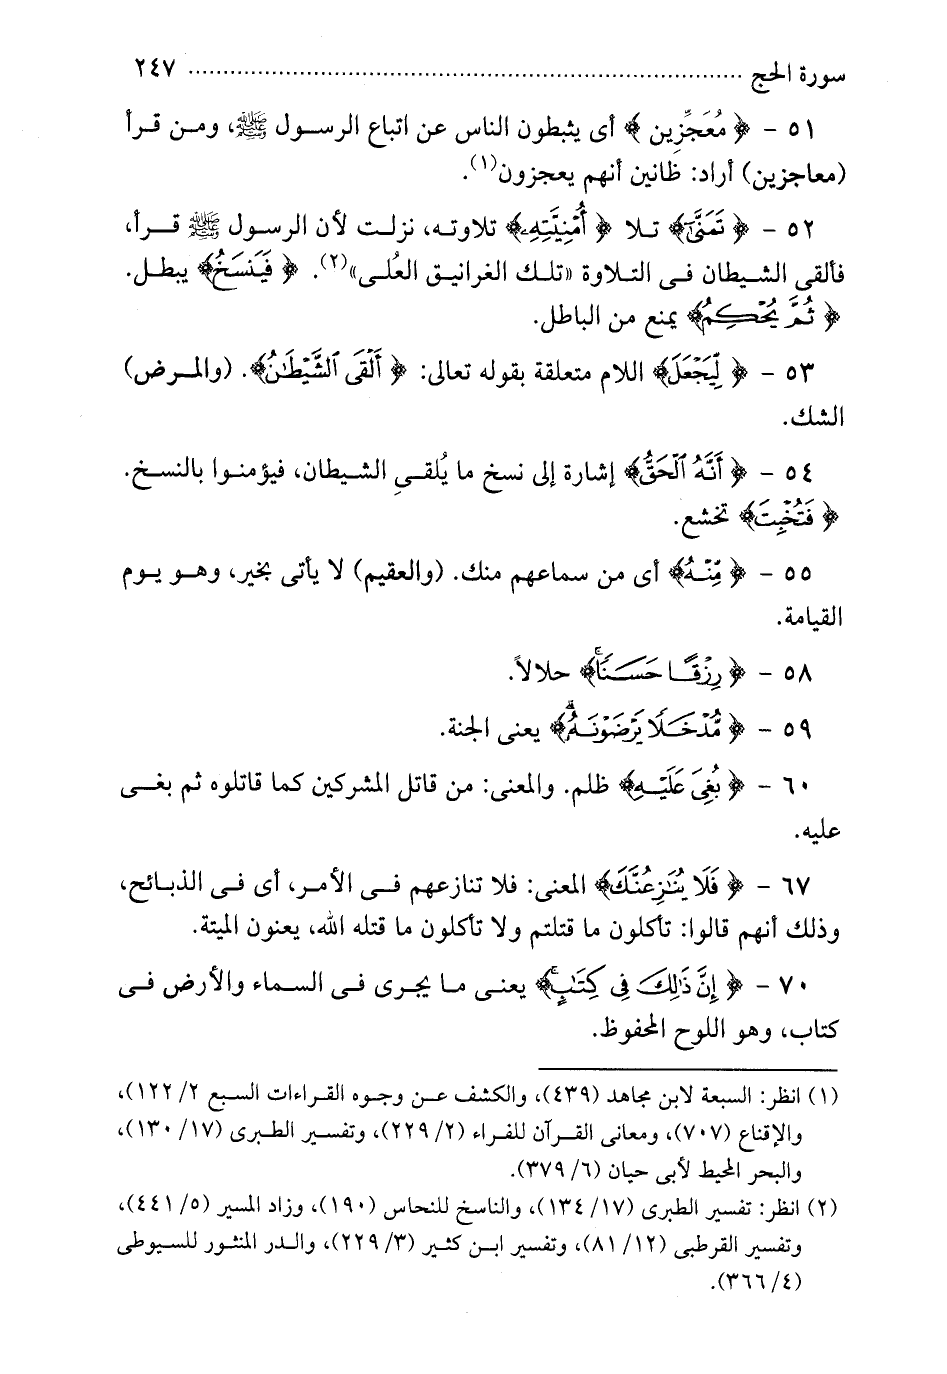 سورة الحج ................................................ ٢٤٧
٥١ - ﴿ مُعَجِّزِين ﴾ أى يثبطون الناس عن اتباع الرسول ﷺ، ومن قرأ
(معاجزين) أراد: ظانين أنهم يعجزون(١).
٥٢ - ﴿ تَمَنَّىٰ﴾ تلا ﴿ أُمْنِيَّتِهِۦ﴾ تلاوته، نزلت لأن الرسول ﷺ قرأ،
فألقى الشيطان فى التلاوة «تلك الغرانيق العُلى»(٢). ﴿ فَيَنسَخُ﴾ يبطل.
﴿ ثُمَّ يُحْكِمُ﴾ يمنع من الباطل.
٥٣ - ﴿ لِّيَجْعَلَ﴾ اللام متعلقة بقوله تعالى: ﴿ أَلْقَى ٱلشَّيْطَـٰنُ﴾. (والمرض)
الشك.
٥٤ - ﴿ أَنَّهُ ٱلْحَقُّ﴾ إشارة إلى نسخ ما يُلقىِ الشيطان، فيؤمنوا بالنسخ.
﴿ فَتُخْبِتَ﴾ تخشع.
٥٥ - ﴿ مِّنْهُ﴾ أى من سماعهم منك. (والعقيم) لا يأتى بخير، وهو يوم
القيامة.
٥٨ - ﴿ رِزْقًا حَسَنًا ۚ﴾ حلالاً.
٥٩ - ﴿ مُّدْخَلًا يَرْضَوْنَهُۥ ۗ﴾ يعنى الجنة.
٦٠ - ﴿ بُغِىَ عَلَيْهِ﴾ ظلم. والمعنى: من قاتل المشركين كما قاتلوه ثم بغى
عليه.
٦٧ - ﴿ فَلَا يُنَـٰزِعُنَّكَ﴾ المعنى: فلا تنازعهم فى الأمر، أى فى الذبائح،
وذلك أنهم قالوا: تأكلون ما قتلتم ولا تأكلون ما قتله الله، يعنون الميتة.
٧٠ - ﴿ إِنَّ ذَٰلِكَ فِى كِتَـٰبٍ ۚ﴾ يعنى ما يجرى فى السماء والأرض فى
كتاب، وهو اللوح المحفوظ.
(١) انظر: السبعة لابن مجاهد (٤٣٩)، والكشف عن وجوه القراءات السبع ٢/ ١٢٢)،
والإقناع (٧٠٧)، ومعانى القرآن للفراء (٢/ ٢٢٩)، وتفسير الطبرى (١٧/ ١٣٠)،
والبحر المحيط لأبى حيان (٦/ ٣٧٩).
(٢) انظر: تفسير الطبرى (١٧/ ١٣٤)، والناسخ للنحاس (١٩٠)، وزاد المسير (٥/ ٤٤١)،
وتفسير القرطبى (١٢/ ٨١)، وتفسير ابن كثير (٣/ ٢٢٩)، والدر المنثور للسيوطى
(٤/ ٣٦٦).